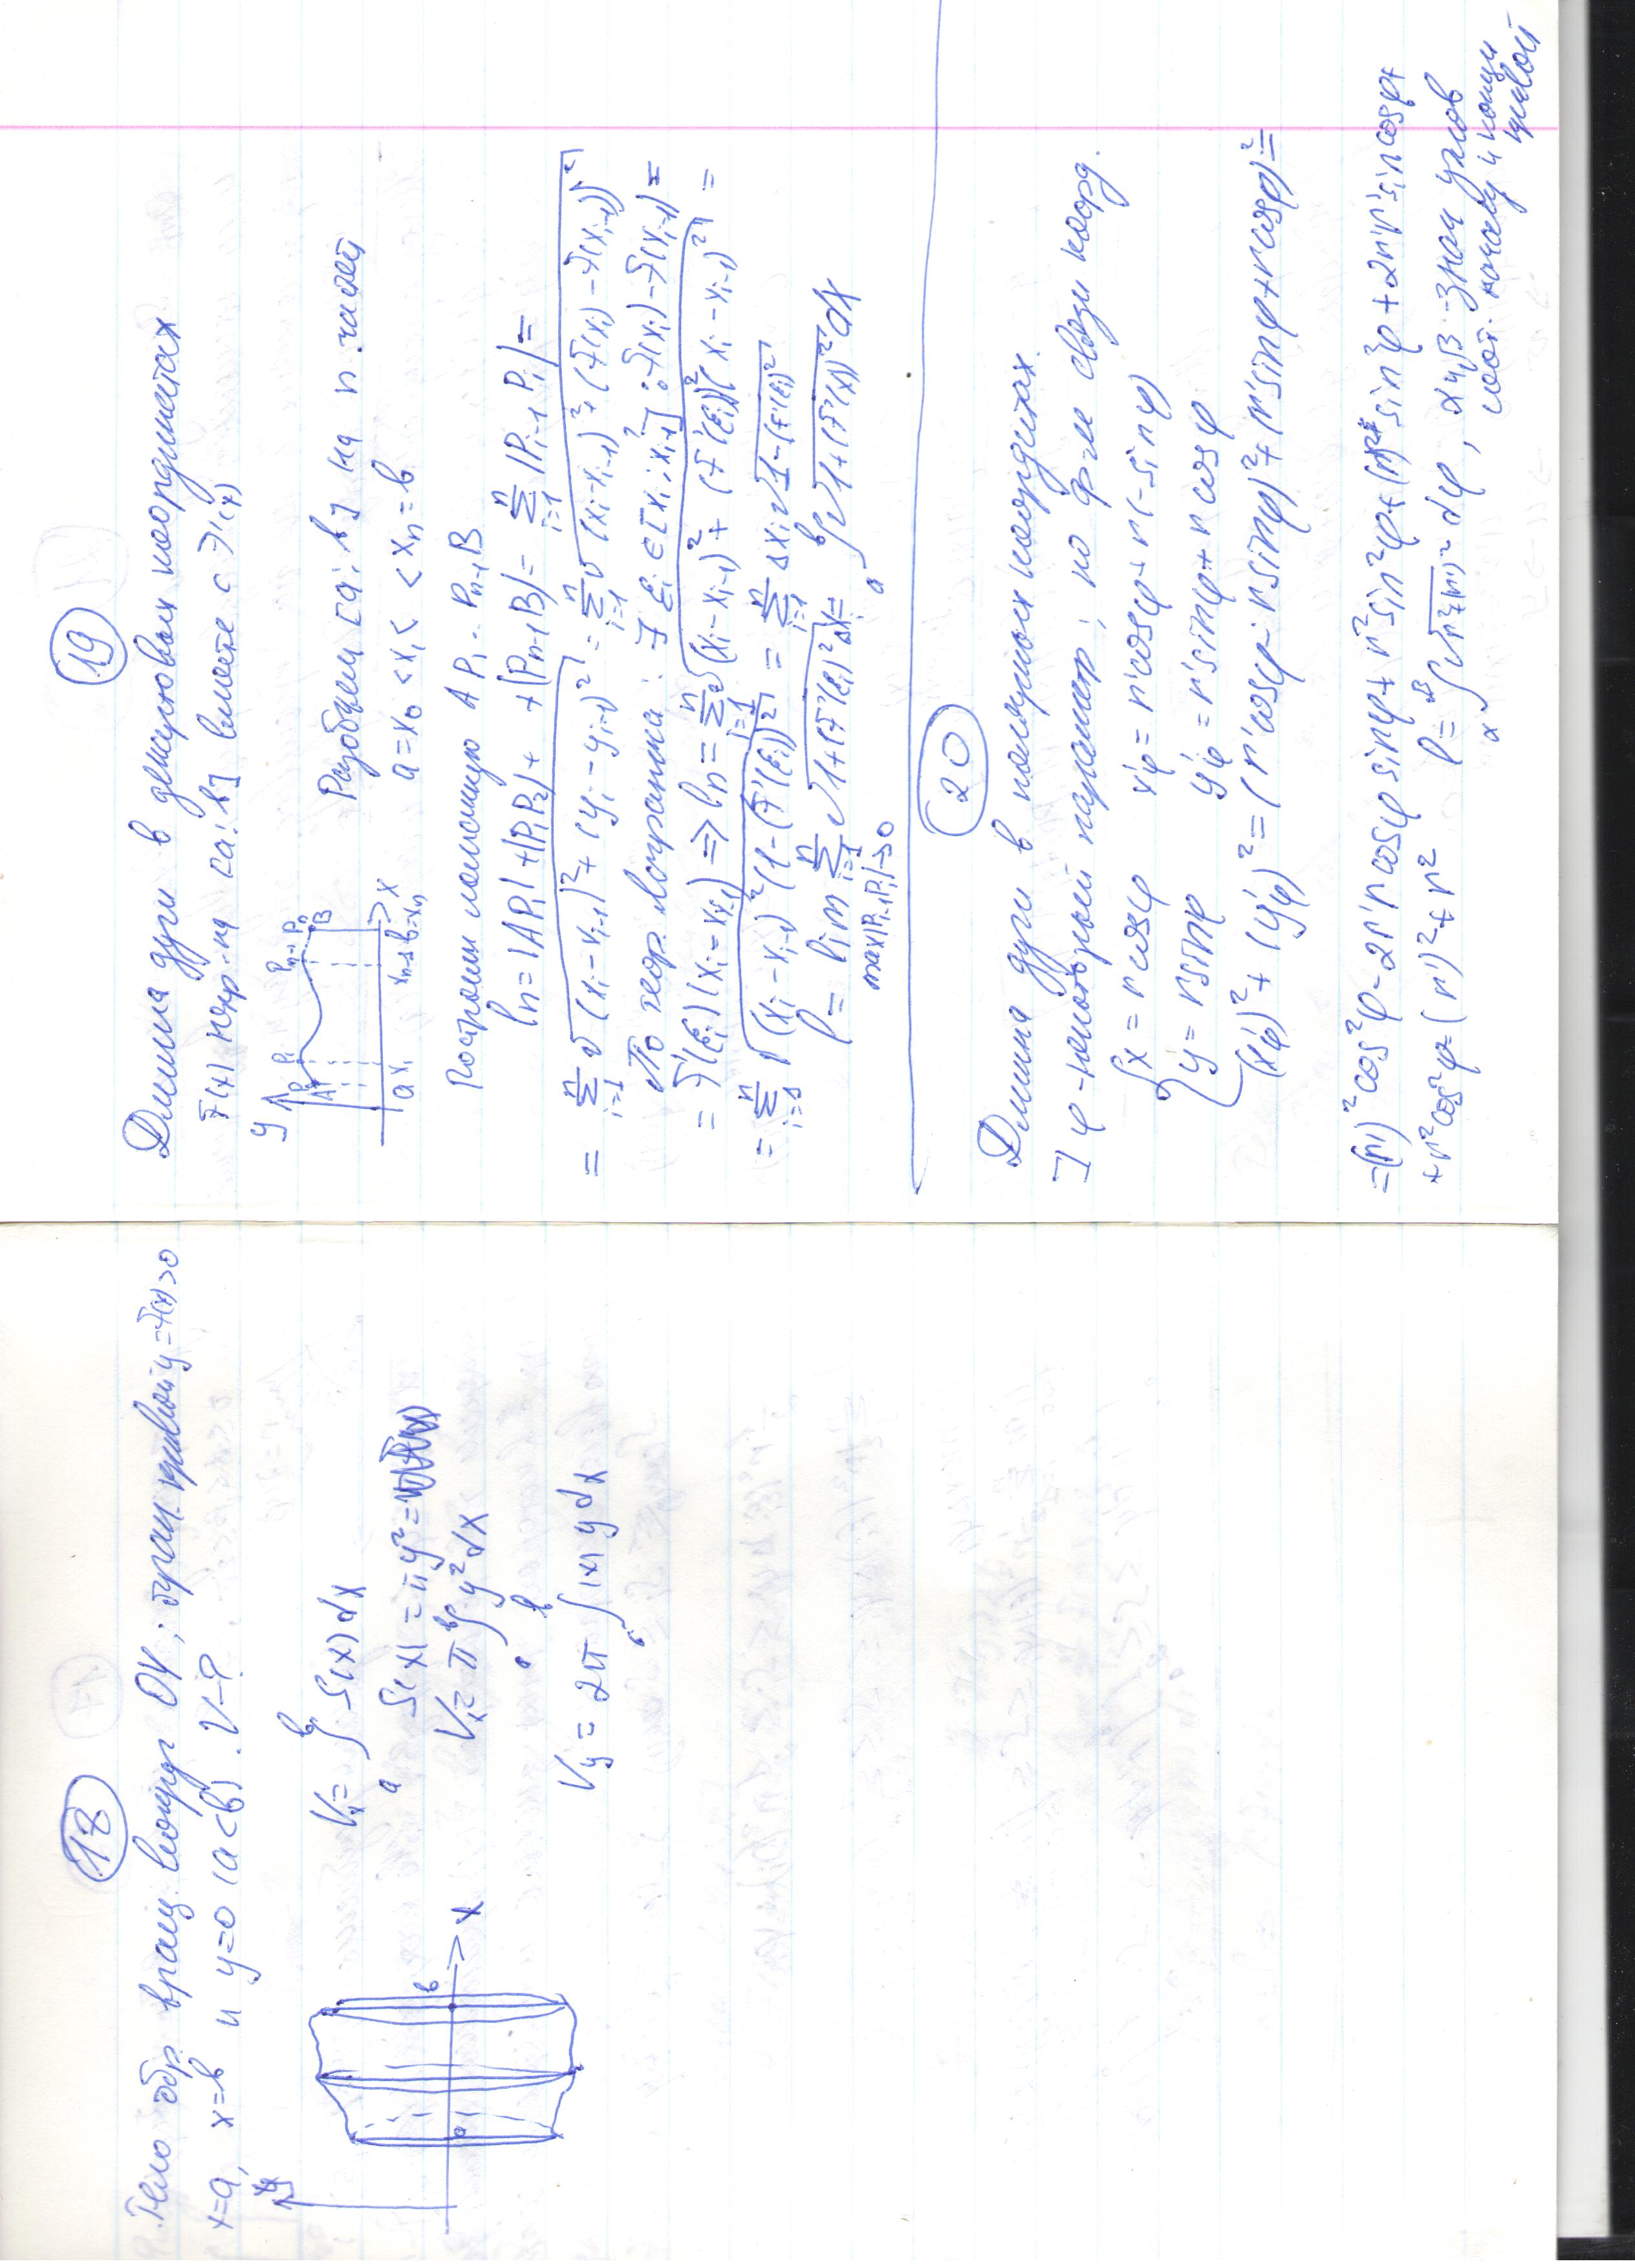 18
Тело обр. вращ. вокруг OY; огран. кривой y=f(x)>0
x=a, x=b и y=0 (a<b). V-?
y
a
b
x
Vₓ = ∫ₐᵇ S(x)dx
S(x) = πy² =
Vₓ = π ∫ₐᵇ y²dx
V_y = 2π ∫ₐᵇ |x| y dx
19
Длина дуги в декартовых координатах
f(x) непр. на [a; b] вместе с f'(x)
y
A P P₁ Pₙ₋₁ Pₙ B
a x₁ xₙ₋₁ b=xₙ x
Разобьем [a; b] на n частей
a=x₀ <x₁< < xₙ=b
Построим ломанную A P₁.. Pₙ₋₁ B
lₙ=|AP₁|+|P₁P₂|+ +|Pₙ₋₁B|= Σᵢ₌₁ⁿ |Pᵢ₋₁ Pᵢ|=
= Σᵢ₌₁ⁿ √((xᵢ-xᵢ₋₁)²+(yᵢ-yᵢ₋₁)²) = Σᵢ₌₁ⁿ √((xᵢ-xᵢ₋₁)²+(f(xᵢ)-f(xᵢ₋₁))²)
По теор. Лагранжа: ∃ ξᵢ ∈[xᵢ; xᵢ₋₁]: f(xᵢ)-f(xᵢ₋₁)=
= f'(ξᵢ)(xᵢ-xᵢ₋₁) => lₙ = Σᵢ₌₁ⁿ √((xᵢ-xᵢ₋₁)²+(f'(ξᵢ))²(xᵢ-xᵢ₋₁)²) =
= Σᵢ₌₁ⁿ √((xᵢ-xᵢ₋₁)²(1-(f'(ξᵢ))²)) = Σᵢ₌₁ⁿ Δxᵢ √(1-(f'(ξᵢ))²)
l = lim Σᵢ₌₁ⁿ √(1+(f'(ξᵢ))²) Δx = ∫ₐᵇ √(1+(f'(x))²) dx
max|Pᵢ₋₁Pᵢ|->0
20
Длина дуги в полярных координатах.
] φ - некоторый параметр; по ф-ле связи коорд.
{ x = r cosφ x'φ = r'cosφ + r(-sinφ)
y = r sinφ y'φ = r'sinφ + r cosφ
(x'φ)² + (y'φ)² = (r'cosφ - r sinφ)² + (r'sinφ + r cosφ)² =
=(r')²cos²φ - 2r'r cosφ sinφ + r²sin²φ + (r')²sin²φ + 2r r'sin cosφ+
+ r²cos²φ = (r')² + r² l = ∫ √(r²+(r')²) dφ, α и β - знач углов
соот. началу и концу
кривой